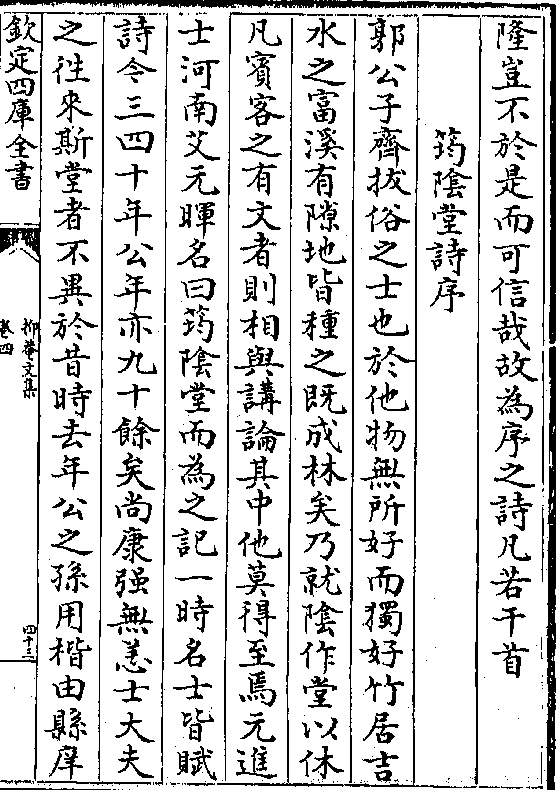 隆豈不於是而可信哉故為序之詩凡若干首
筠陰堂詩序
郭公子齊拔俗之士也於他物無所好而獨好竹居吉
水之富溪有隙地皆種之既成林矣乃就陰作堂以休
凡賓客之有文者則相與講論其中他莫得至焉元進
士河南艾元暉名曰筠陰堂而為之記一時名士皆賦
詩今三四十年公年亦九十餘矣尚康强無恙士大夫
之徃來斯堂者不異於昔時去年公之孫用楷由縣庠
欽定四庫全書
抑菴文集
卷四
四十三